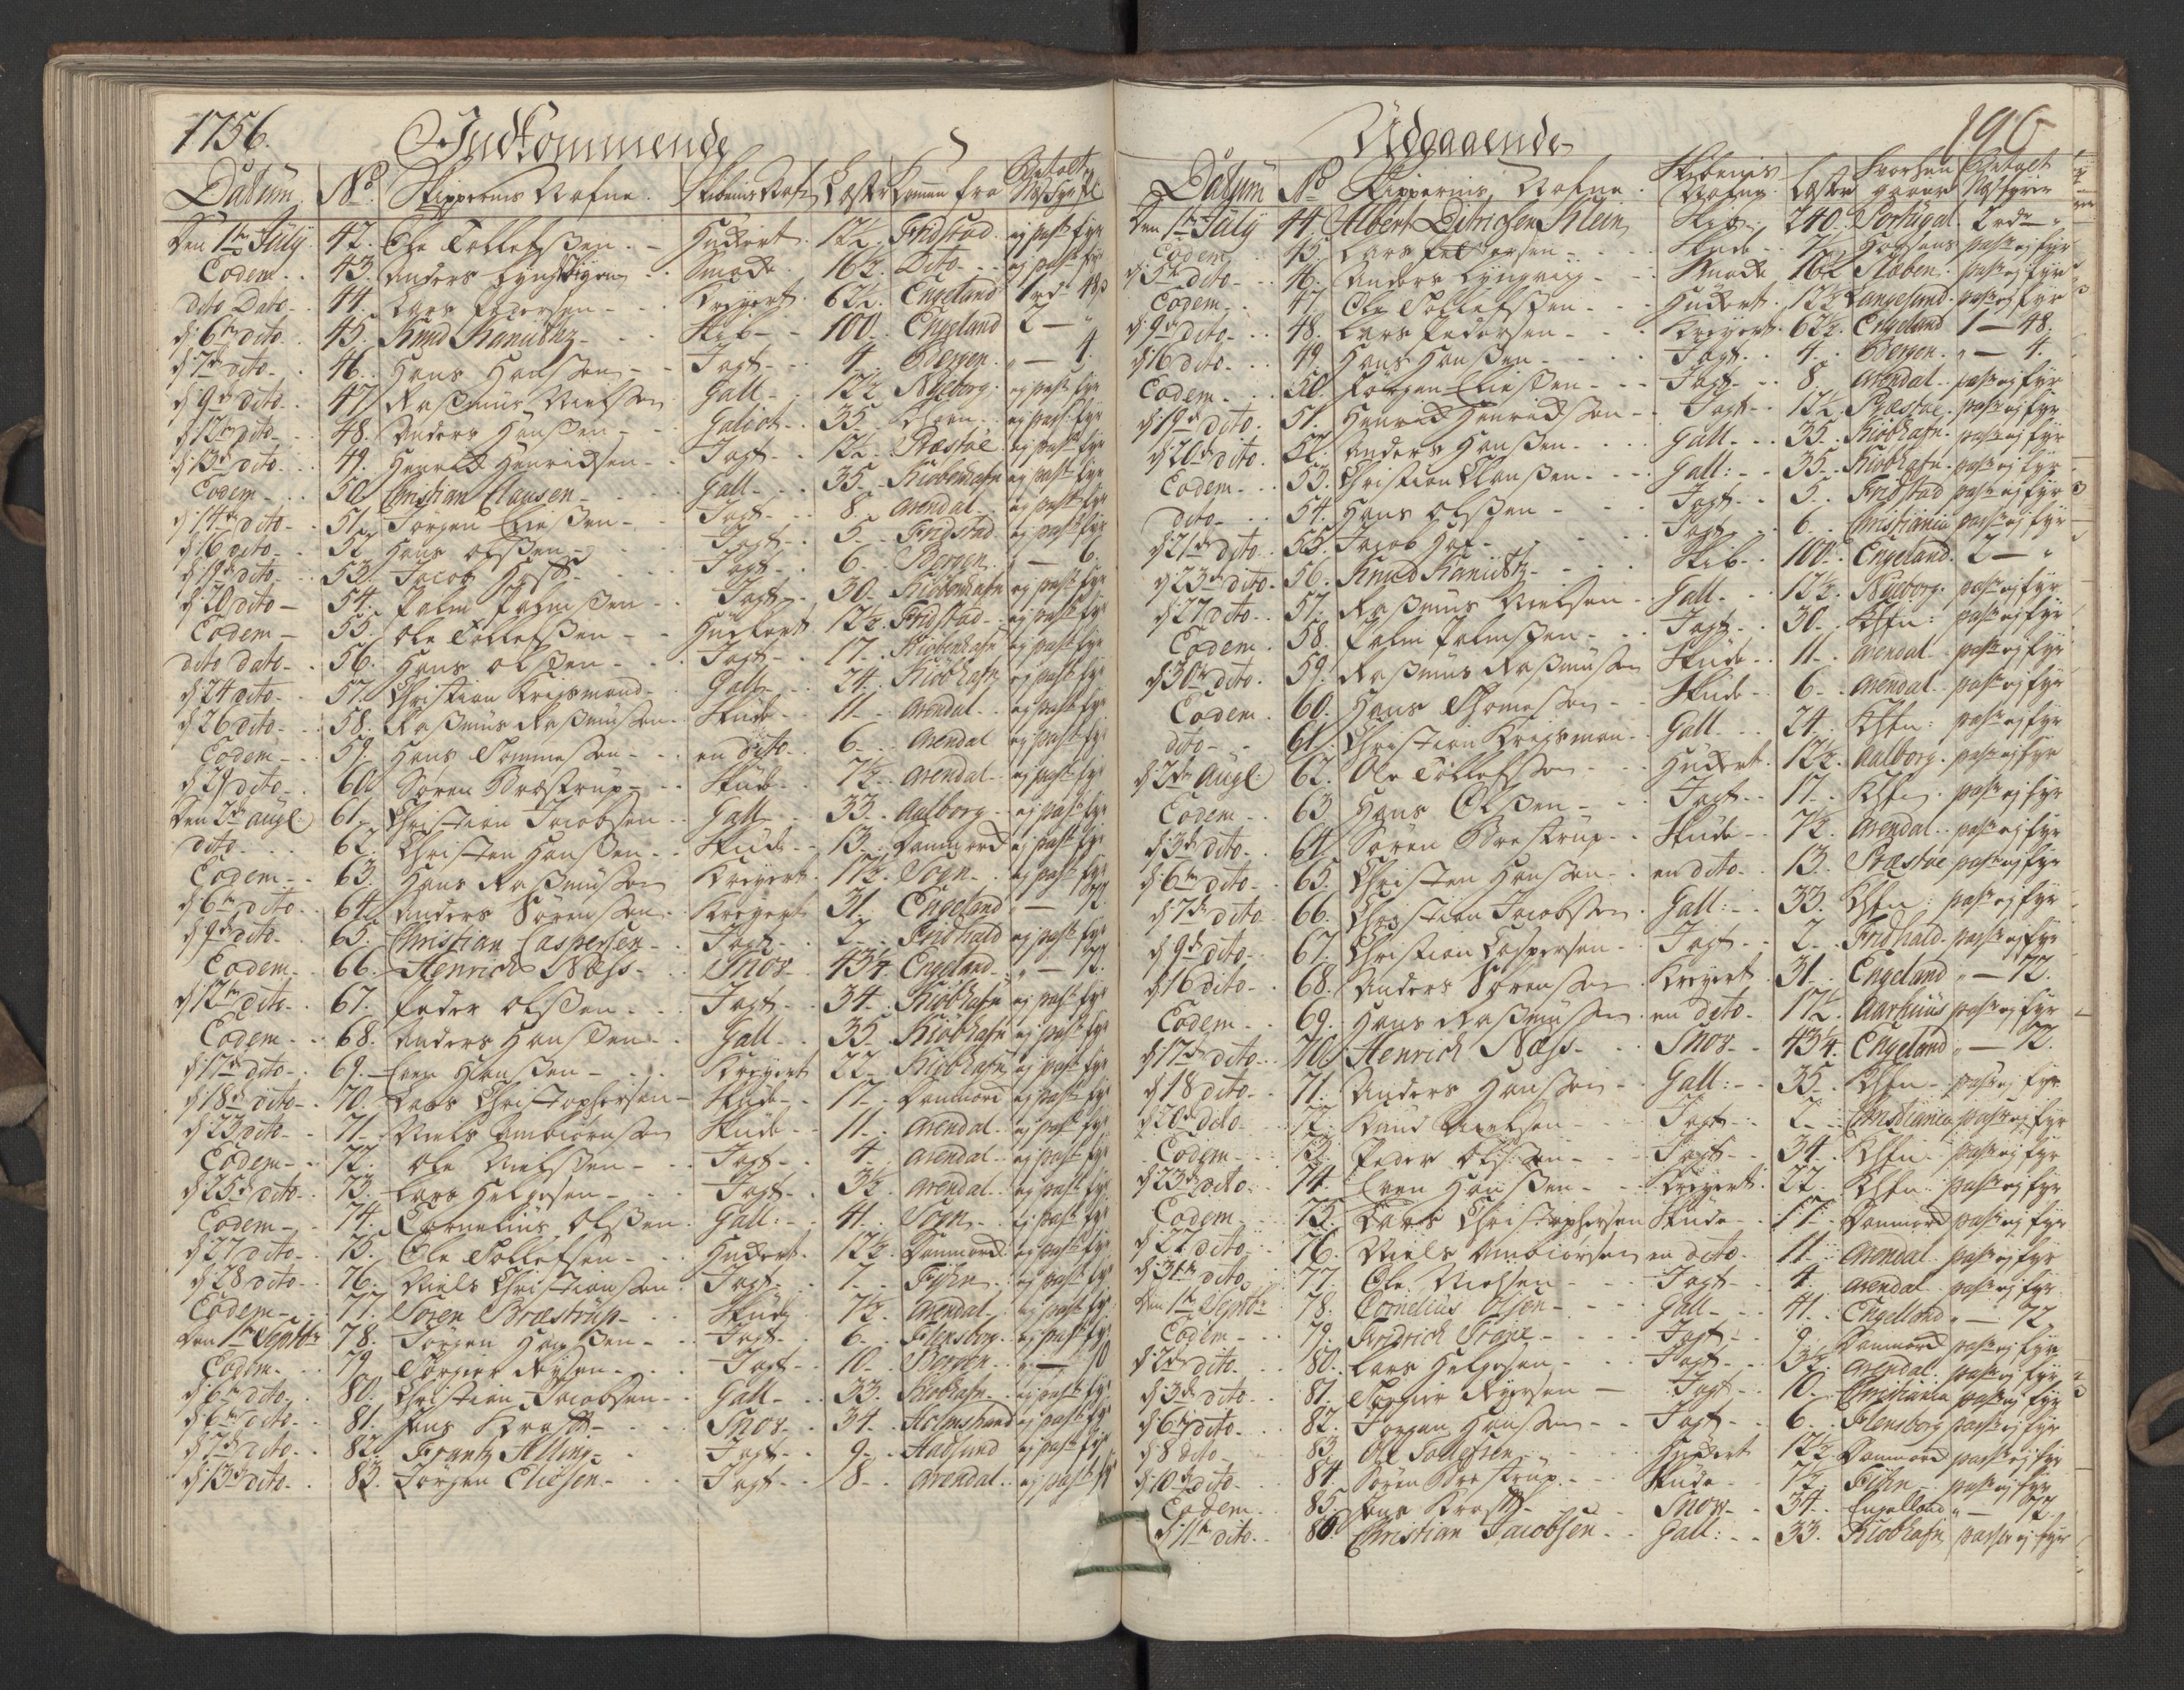 1756. Indkommende
Datum No. Skippernis Nafne Skibenis Nafn Læster Kommen fra Betalt
Den 1te July 42. Ole Tollefsen Huckert 12½ Fridstad ej pass: fyr
Eodem 43. Anders Smacke 16½ Dito ej pass: fyr
dito Dato 44. Lars Pedersen Kreyert 62½ Engeland 1 rd 48
d: 6te dito 45. Knud Skib 100 Engeland 2 –
d: 7de dito 46. Hans Hansen Jagt 4 Bergen „ – 4
d: 9de dito 47. Rasmus Nielsen Gall 12½ Nyeborg ej pass: fyr
d: 12te dito 48. Anders Hansen Galiot 35 ej pass: fyr
d: 13de dito 49. Henrick Henricksen Jagt 12½ Præstøe ej pass: fyr
Eodem 50. Christian Clausen Gall 35 Kiøbenhafn ej pass: fyr
d: 14de dito 51. Jørgen Eliesen Jagt 8 Arendal ej pass: fyr
d: 16 dito 52. Hans Olssen Jagt 5 Fridstad ej pass: fyr
d: 19de dito 53. Jacob Jagt 6 Bergen „ – 6
d: 20 dito 54. Palm Palmsen Jagt 30 Kiøbenhafn ej pass: fyr
Eodem 55. Ole Tollefsen Huckert 12½ Fridstad ej pass: fyr
dito dato 56. Hans Olssen Jagt 17 Kiøbenhafn ej pass: fyr
d: 24 dito 57. Christian Krigsmand Gall 24 Kiøbhafn ej pass: fyr
d: 26 dito 58. Rasmus Rasmussen Skude 11 Arendal ej pass: fyr
Eodem 59. Hans Tommesen en dito 6 Arendal ej pass: fyr
d: 29 dito 60. Søren Bræstrup Skude 7½ Arendal ej pass: fyr
Den 2de Augl: 61. Christian Jacobsen Gall 33 Aalborg ej pass: fyr
dito 62. Christen Hansen Skude 13 Danmarck ej pass: fyr
Eodem 63. Hans Rasmussen Kreyert 17½ Sogn ej pass: fyr
d: 6te dito 64. Anders Sørensen Kreyert 31 Engeland „ – 72
d: 9de dito 65. Christian Caspersen Jagt 2 Fridhald ej pass: fyr
Eodem 66. Henrich Næss Snov 43¼ Engeland „ – 72
d: 12te dito 67. Peder Olssen Jagt 34 Kiøbhafn ej pass: fyr
Eodem 68. Anders Hansen Gall 35 Kiøbhafn ej pass: fyr
d: 17de dito 69. Even Hansen Kreyert 22 Kiøbhafn ej pass: fyr
d: 18de dito 70. Lars Christophersen Skude 17 Danmarck ej pass: fyr
d: 23 dito 71. Niels Ambiørnsen Skude 11 Arendal ej pass: fyr
Eodem 72. Ole Nielsen Jagt 4 Arendal ej pass: fyr
d: 25de dito 73. Lars Helgesen Jagt 3½ Arendal ej pass: fyr
Eodem 74. Cornelius Olssen Gall: 41 Sogn ej pass: fyr
d: 27 dito 75. Ole Tollefsen Huckert 12½ Danmarck ej pass: fyr
d: 28 dito 76. Niels Christiansen Jagt 7 Fyhn ej pass: fyr
Eodem 77. Søren Bræstrup Skude 7½ Arendal ej pass: fyr
Den 1te Septbr 78. Jørgen Hansen Jagt 6 Flensborg ej pass: fyr
Eodem 79. Torger Rysen Jagt 10 Bergen „ – 10
d: 6te dito 80. Christian Jacobsen Gall 33 Kiøbhafn ej pass: fyr
d: 6te dito 81. Jens Snov 34 Holmstrand ej pass: fyr
d: 7de dito 82. Frantz Jagt 9 Hadsund ej pass: fyr
d: 13de dito 83. Jørgen Eliesen Jagt 8 Arendal ej pass: fyr
Udgaaende 196
Datum No Skippernis Nafne Skibenis Nafne Læster hvorhen gaaer Betalt
Den 1te July 44. Albert Ditrichsen Klein Skib 240 Portugal 2 rd „
Eodem 45. Lars Pettersen Skude 7½ Horsens pass: ej fyr
d: 5te dito 46. Anders Lyngvig Smacke 16½ pass: ej fyr
Eodem 47. Ole Tollefsen Huckert 12½ Langeland pass: ej fyr
d: 9de dito 48. Lars Pedersen Kreyert 62½ Engeland 1 – 48
d: 16 dito 49. Hans Hansen Jagt 4 Bergen „ – 4
Eodem 50. Jørgen Eliesen Jagt 8 Arendal pass: ej fyr
d: 19de dito 51. Henrick Henricksen Jagt 12½ Præstøe pass: ej fyr
d: 20de dito 52. Anders Hansen Gall 35 Kiøbhafn pass: ej fyr
Eodem 53. Christian Clausen Gall: 35 Kiøbhafn pass: ej fyr
dito 54. Hans Olssen Jagt 5 Fridstad pass: ej fyr
d: 21de dito 55. Jacob Jagt 6 Christiania pass: ej fyr
d: 23de dito 56. Knud Skib 100 Engeland 2 – „
d: 27 dito 57. Rasmus Nielsen Gall 12½ Nyborg pass: ej fyr
Eodem 58. Palm Palmsen Jagt 30 Khfn: pass: ej fyr
d: 30te dito 59. Rasmus Rasmussen Skude 11 Arendal pass: ej fyr
Eodem 60. Hans Thomesen Skude 6 Arendal pass: ej fyr
dito 61. Christian Krigsman Gall 24 Khfn: pass: ej fyr
d: 2de Augl: 62. Ole Tollefsen Huckert 12½ Aalborg pass: ej fyr
Eodem 63 Hans Olssen Jagt 17 Khfn pass: ej fyr
d: 3de dito 64 Søren Bræstrup Skude 7½ Arendal pass: ej fyr
d: 6te dito 65. Christen Hansen en dito 13 Præstøe pass: ej fyr
d: 7de dito 66. Christian Jacobsen Gall: 33 Khfn: pass: ej fyr
d: 9de dito 67. Christian Caspersen Jagt 2 Fridhald pass: ej fyr
d: 16 dito 68. Anders Sørensen Kreyert 31 Engeland „ – 72
Eodem 69. Hans Rasmussen en dito 17½ Aarhuus pass: ej fyr
d: 17de dito 70. Henrich Næss Snov 43¼ Engeland „ – 72
d: 18 dito 71. Anders Hansen Gall: 35 Khfn pass: ej fyr
d: 20de dito 72. Knud Nielsen Jagt 2 Christiania pass: ej fyr
Eodem 73. Peder Olssen Jagt 34 Khfn: pass: ej fyr
d: 23de dito 74. Even Hansen Kreyert 22 Khfn: pass: ej fyr
Eodem 75. Lars Christophersen Skude 17 Danmarck pass: ej fyr
d: 27 dito 76. Niels Ambiørsen en dito 11 Arendal pass: ej fyr
d: 31te dito 77. Ole Nielsen Jagt 4 Arendal pass: ej fyr
Den 1te Septbr 78. Cornelius Olsen Gall 41 Engelland „ – 72
Eodem 79. Fridrich Jagt 9 Danmarck pass: ej fyr
d: 2de dito 80. Lars Helgesen Jagt 3½ Arendal pass: ej fyr
d: 3de dito 81. Torger Ryersen Jagt 10 Christiania pass: ej fyr
d: 6te dito 82. Jørgen Hansen Jagt 6 Flensborg pass: ej fyr
d: 8 dito 83. Ole Tollefsen Huckert 12½ Danmarck pass: ej fyr
d: 10de dito 84. Søren Bræstrup Skude 7½ Fyhn pass: ej fyr
Eodem 85. Jens Snow 34 Engelland „ – 72
d: 11te dito 86. Christian Jacobsen Gall: 33 Kiøbhafn passer ej fyr